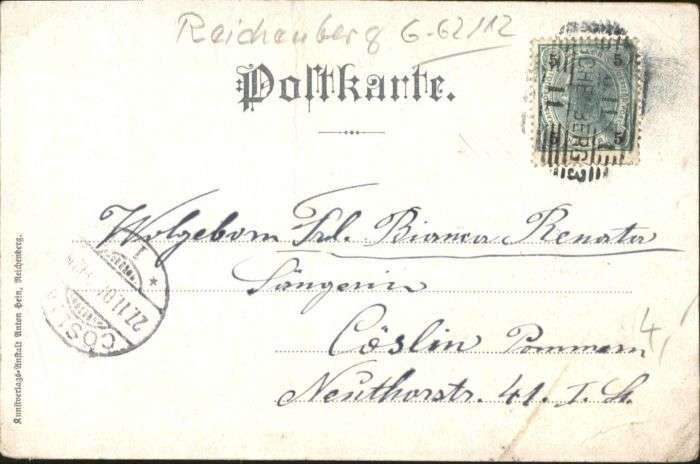 Reichenberg 6-62/12
Postkarte.
5 5
5 5
REICHENBERG 3
11
Wolgeborn Frl. Bianca Renata
Sängerin
Cöslin Pommern
Neuthorstr. 41. I. St.
4,
CÖSLIN
27.11.01
* 1
Kunstverlags-Anstalt Anton Hein, Reichenberg.